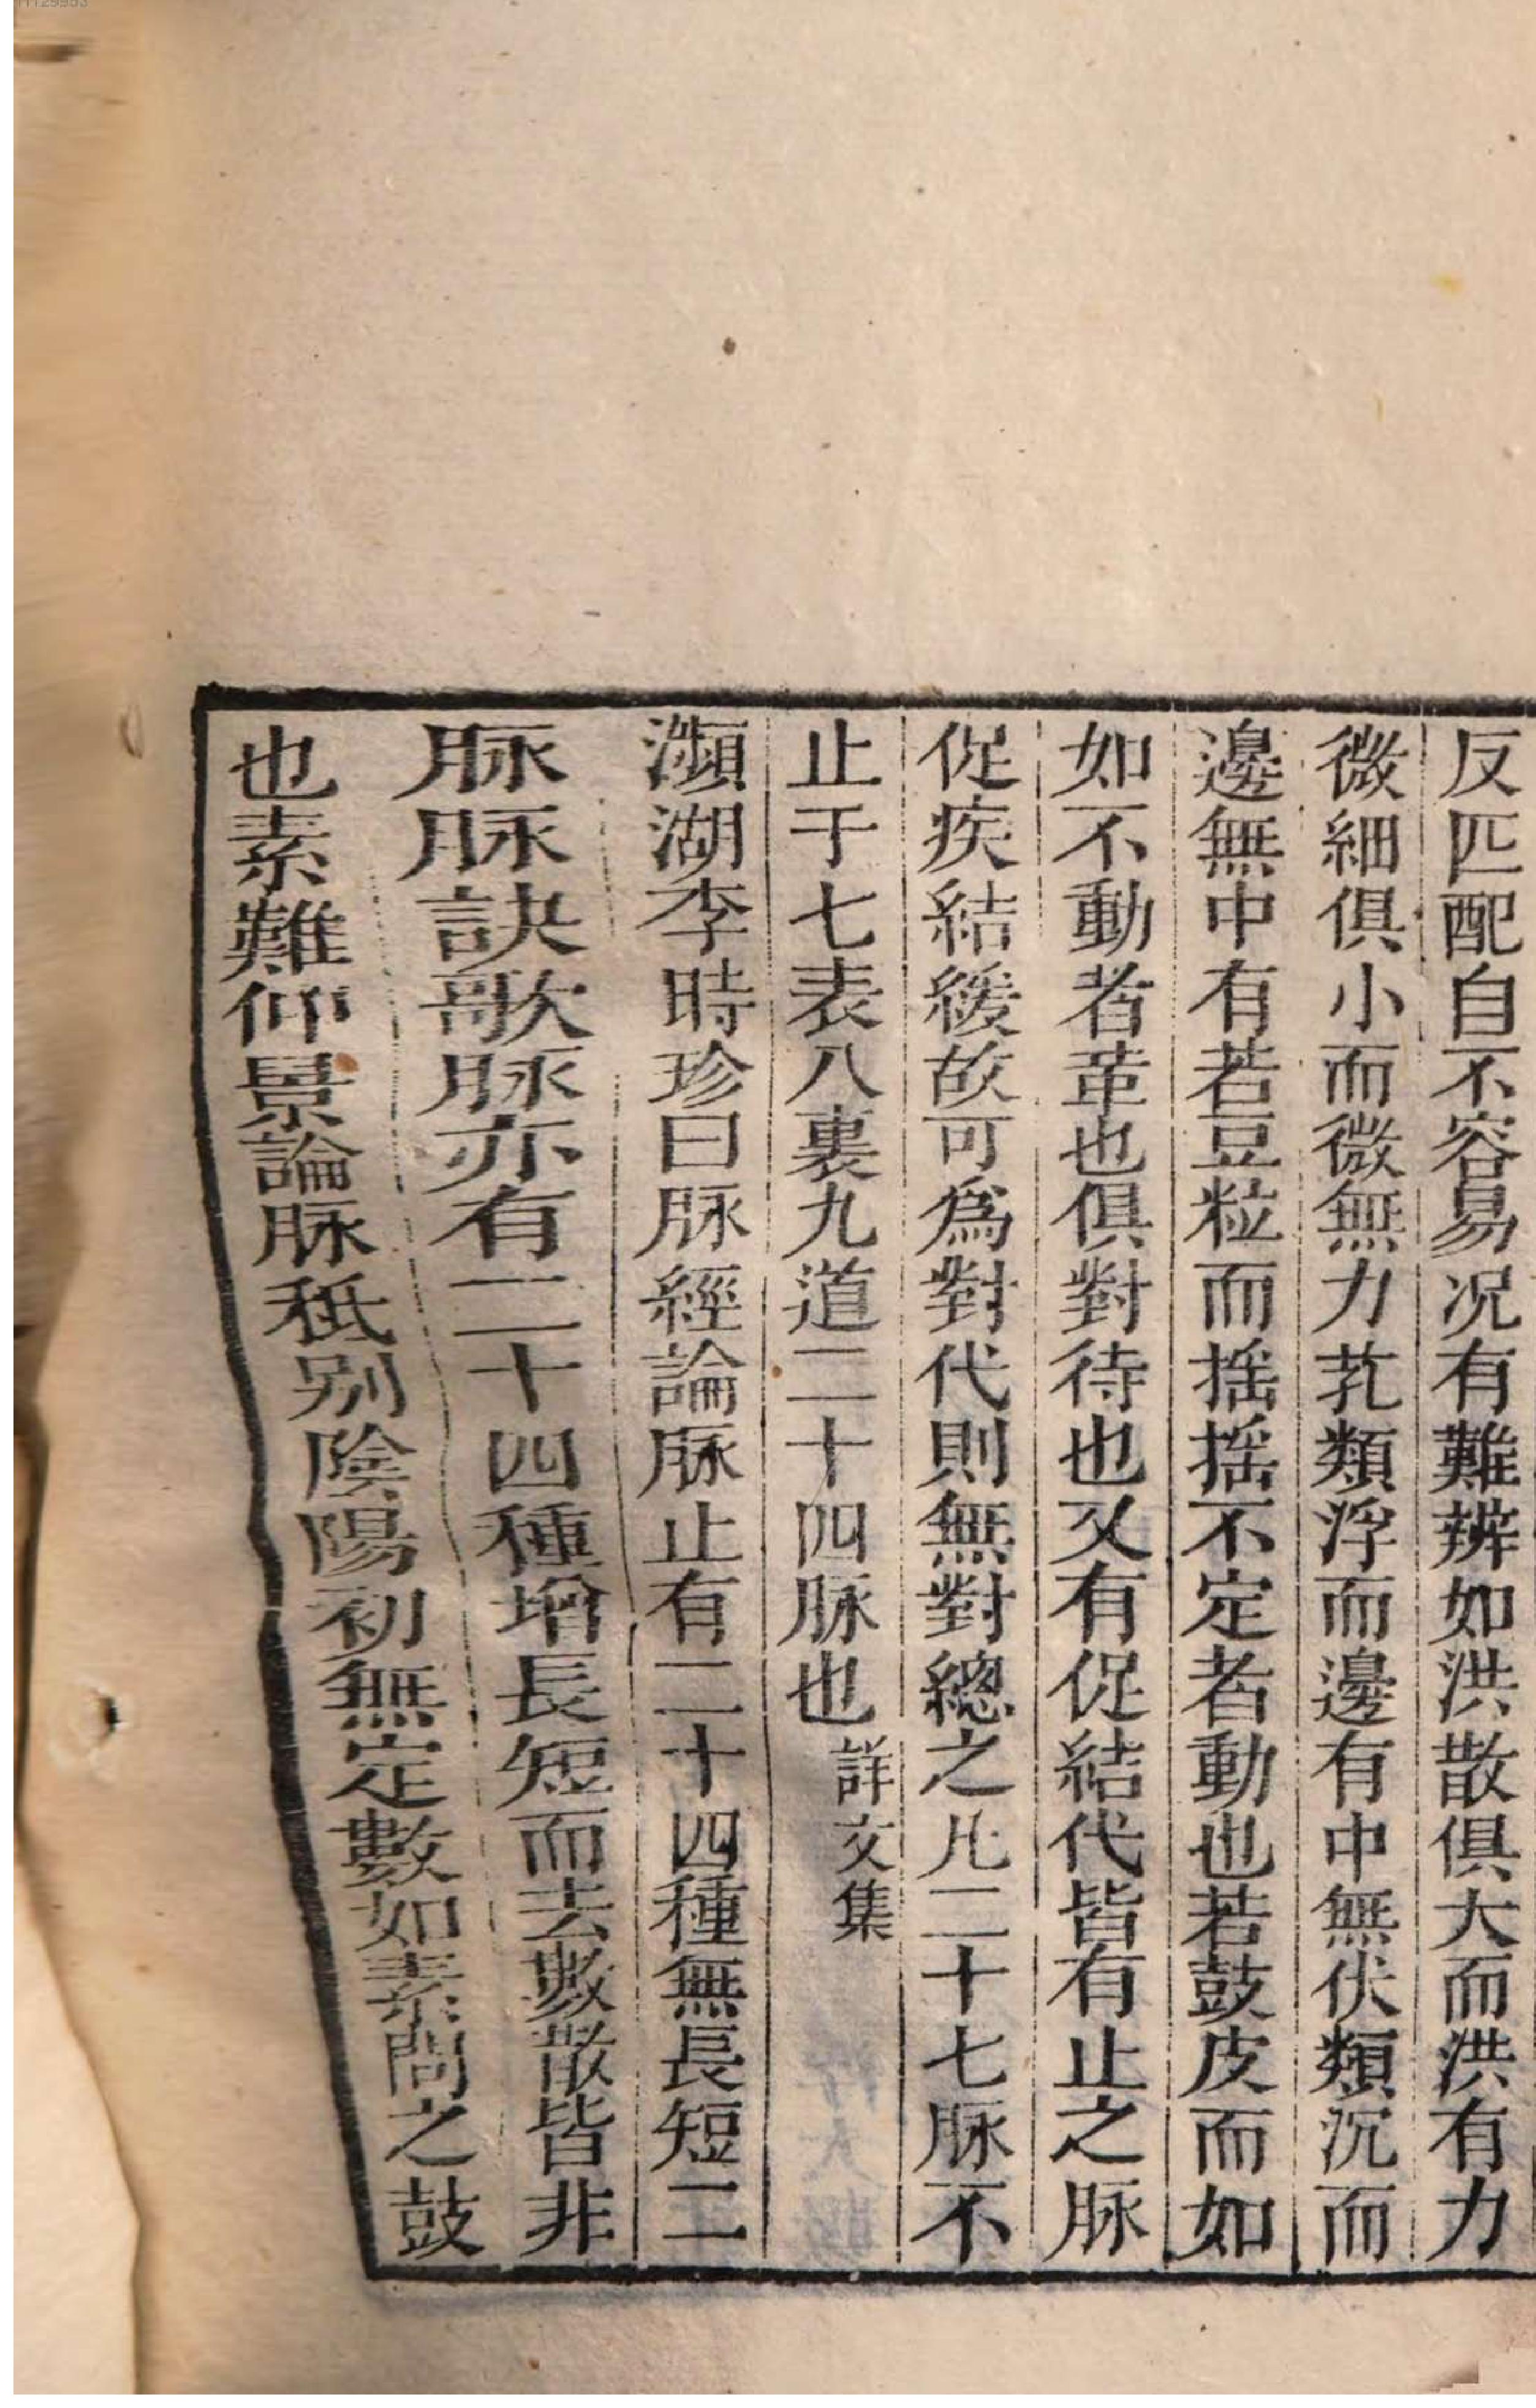 反匹配自不容易况有難辨如洪散俱大而洪有力
微細俱小而微無力芤類浮而邊有中無伏類沉而
邊無中有若豆粒而揺揺不定者動也若鼓皮而如
如不動者革也俱對待也又有促結代皆有止之脉
促疾結緩故可爲對代則無對總之凡二十七脉不
止于七表八裏九道二十四脉也詳文集
瀕湖李時珍曰脉經論脉止有二十四種無長短二
脉脉訣歌脉亦有二十四種增長短而去數散皆非
也素難仰景論脉秪别陰陽初無定數如素問之鼓